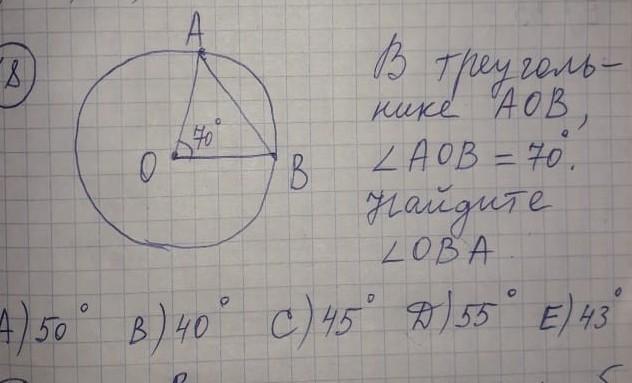 8
A
70°
O
B
В треуголь-
нике АОВ,
∠AOB = 70°.
Найдите
∠OBA
A) 50° B) 40° C) 45° D) 55° E) 43°